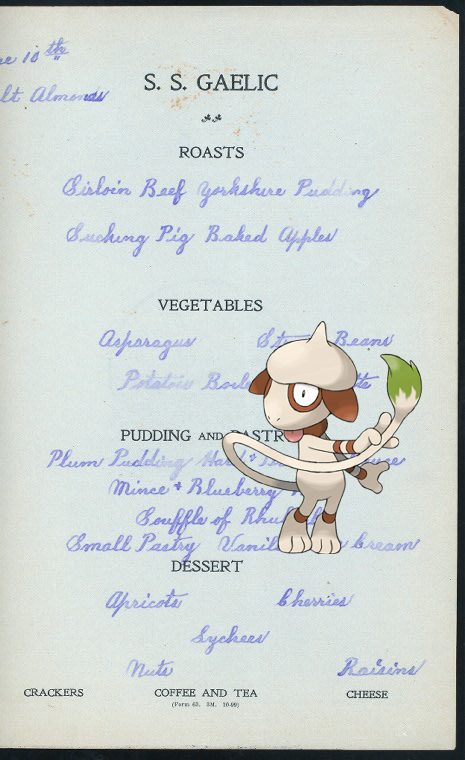 10th
Almonds
S. S. GAELIC
ROASTS
Sirloin Beef Yorkshire Pudding
Sucking Pig Baked Apples
VEGETABLES
Asparagus Beans
Potatoes
PUDDING AND
Plum Pudding Hard
Mince & Blueberry
Souffle of
Small Pastry Cream
DESSERT
Apricots Cherries
Lychees
Nuts Raisins
CRACKERS COFFEE AND TEA CHEESE
(Form 63. 3M. 10-99)